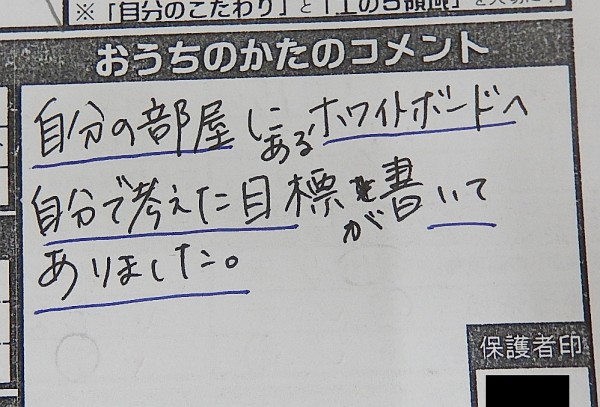 ※「自分のこだわり」と「1の5領域」を大切に
おうちのかたのコメント
自分の部屋にあるホワイトボードへ
自分で考えた目標が書いて
ありました。
保護者印